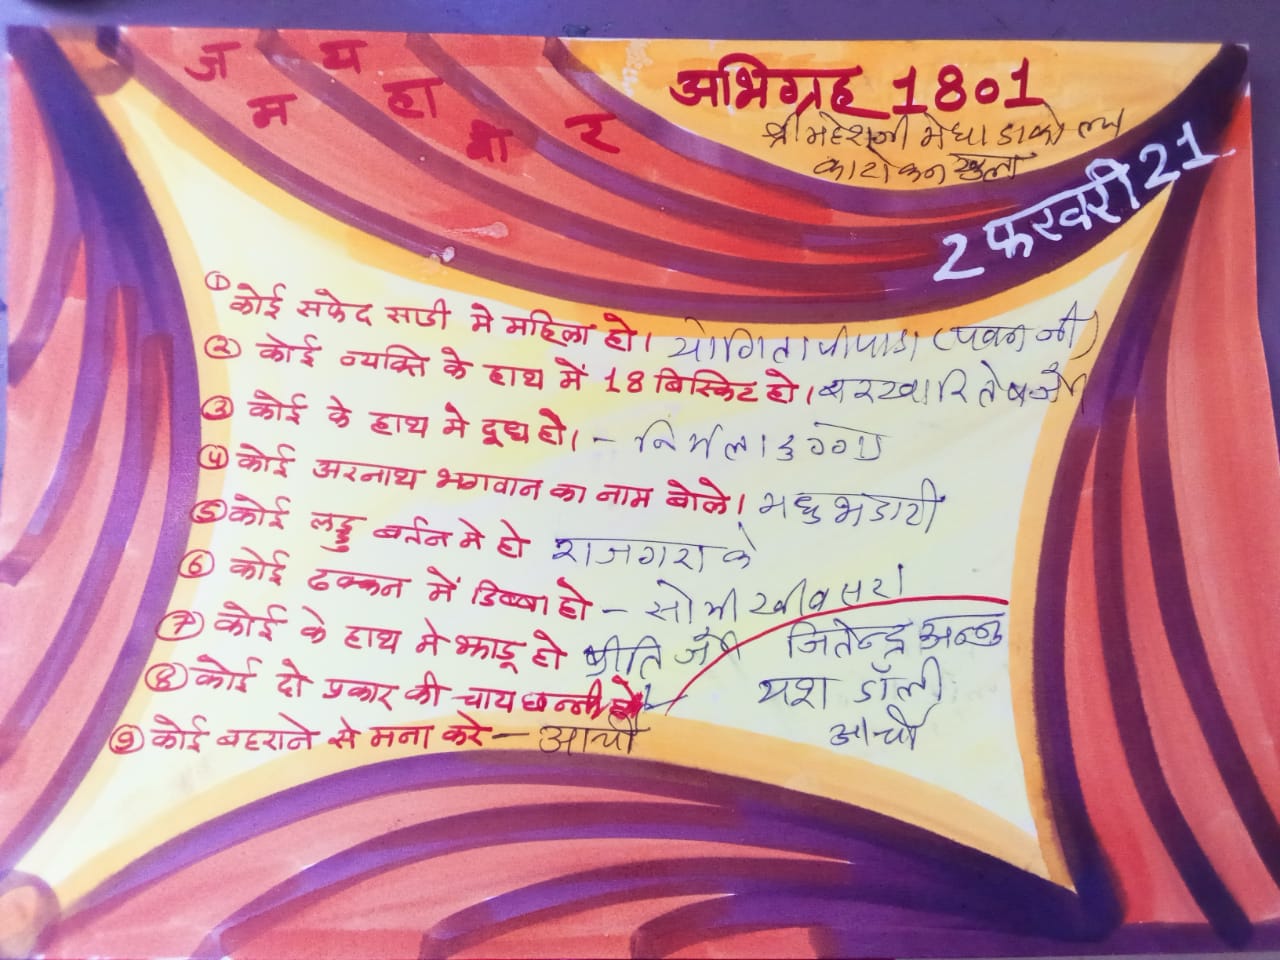 ज य
म हा
वी र
अभिग्रह 1801
श्री महेशजी मेधा डाकोल्या
का रोकन खुला
2 फरवरी 21
① कोई सफेद साडी मे महिला हो। योगिता पीपाडा (पवन जी)
② कोई व्यक्ति के हाथ में 18 बिस्किट हो।
③ कोई के हाथ मे दूध हो। - निर्मला डुग्गड
④ कोई अरनाथ भगवान का नाम बोले। मधु भडारी
⑤ कोई लड्डु बर्तन मे हो राजगरा के
⑥ कोई ढक्कन में डिब्बा हो - सोमी खीवसरा
⑦ कोई के हाथ मे झाडू हो प्रीति जैन
⑧ कोई दो प्रकार की चाय छन्नी हो
जितेन्द्र अन्नु
यश डॉली
आर्ची
⑨ कोई बहराने से मना करे - आर्ची